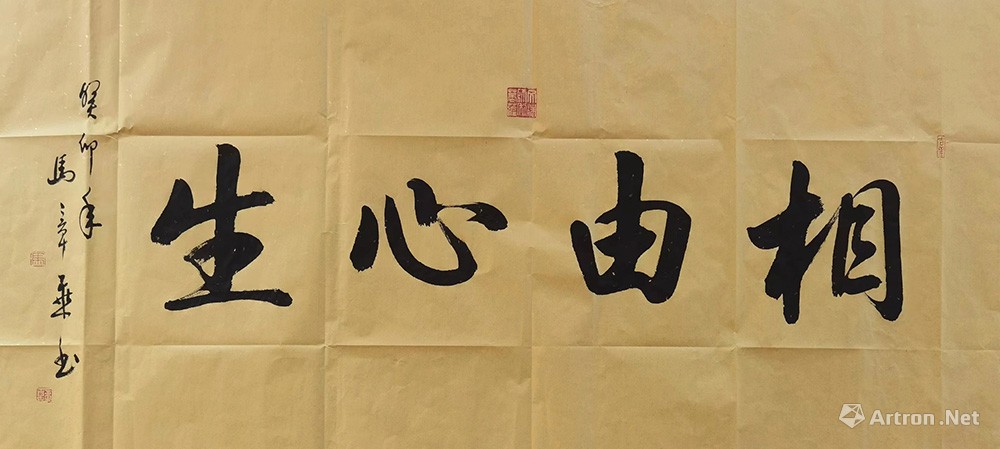 相由心生
癸卯年
馬章乘书
Artron.Net